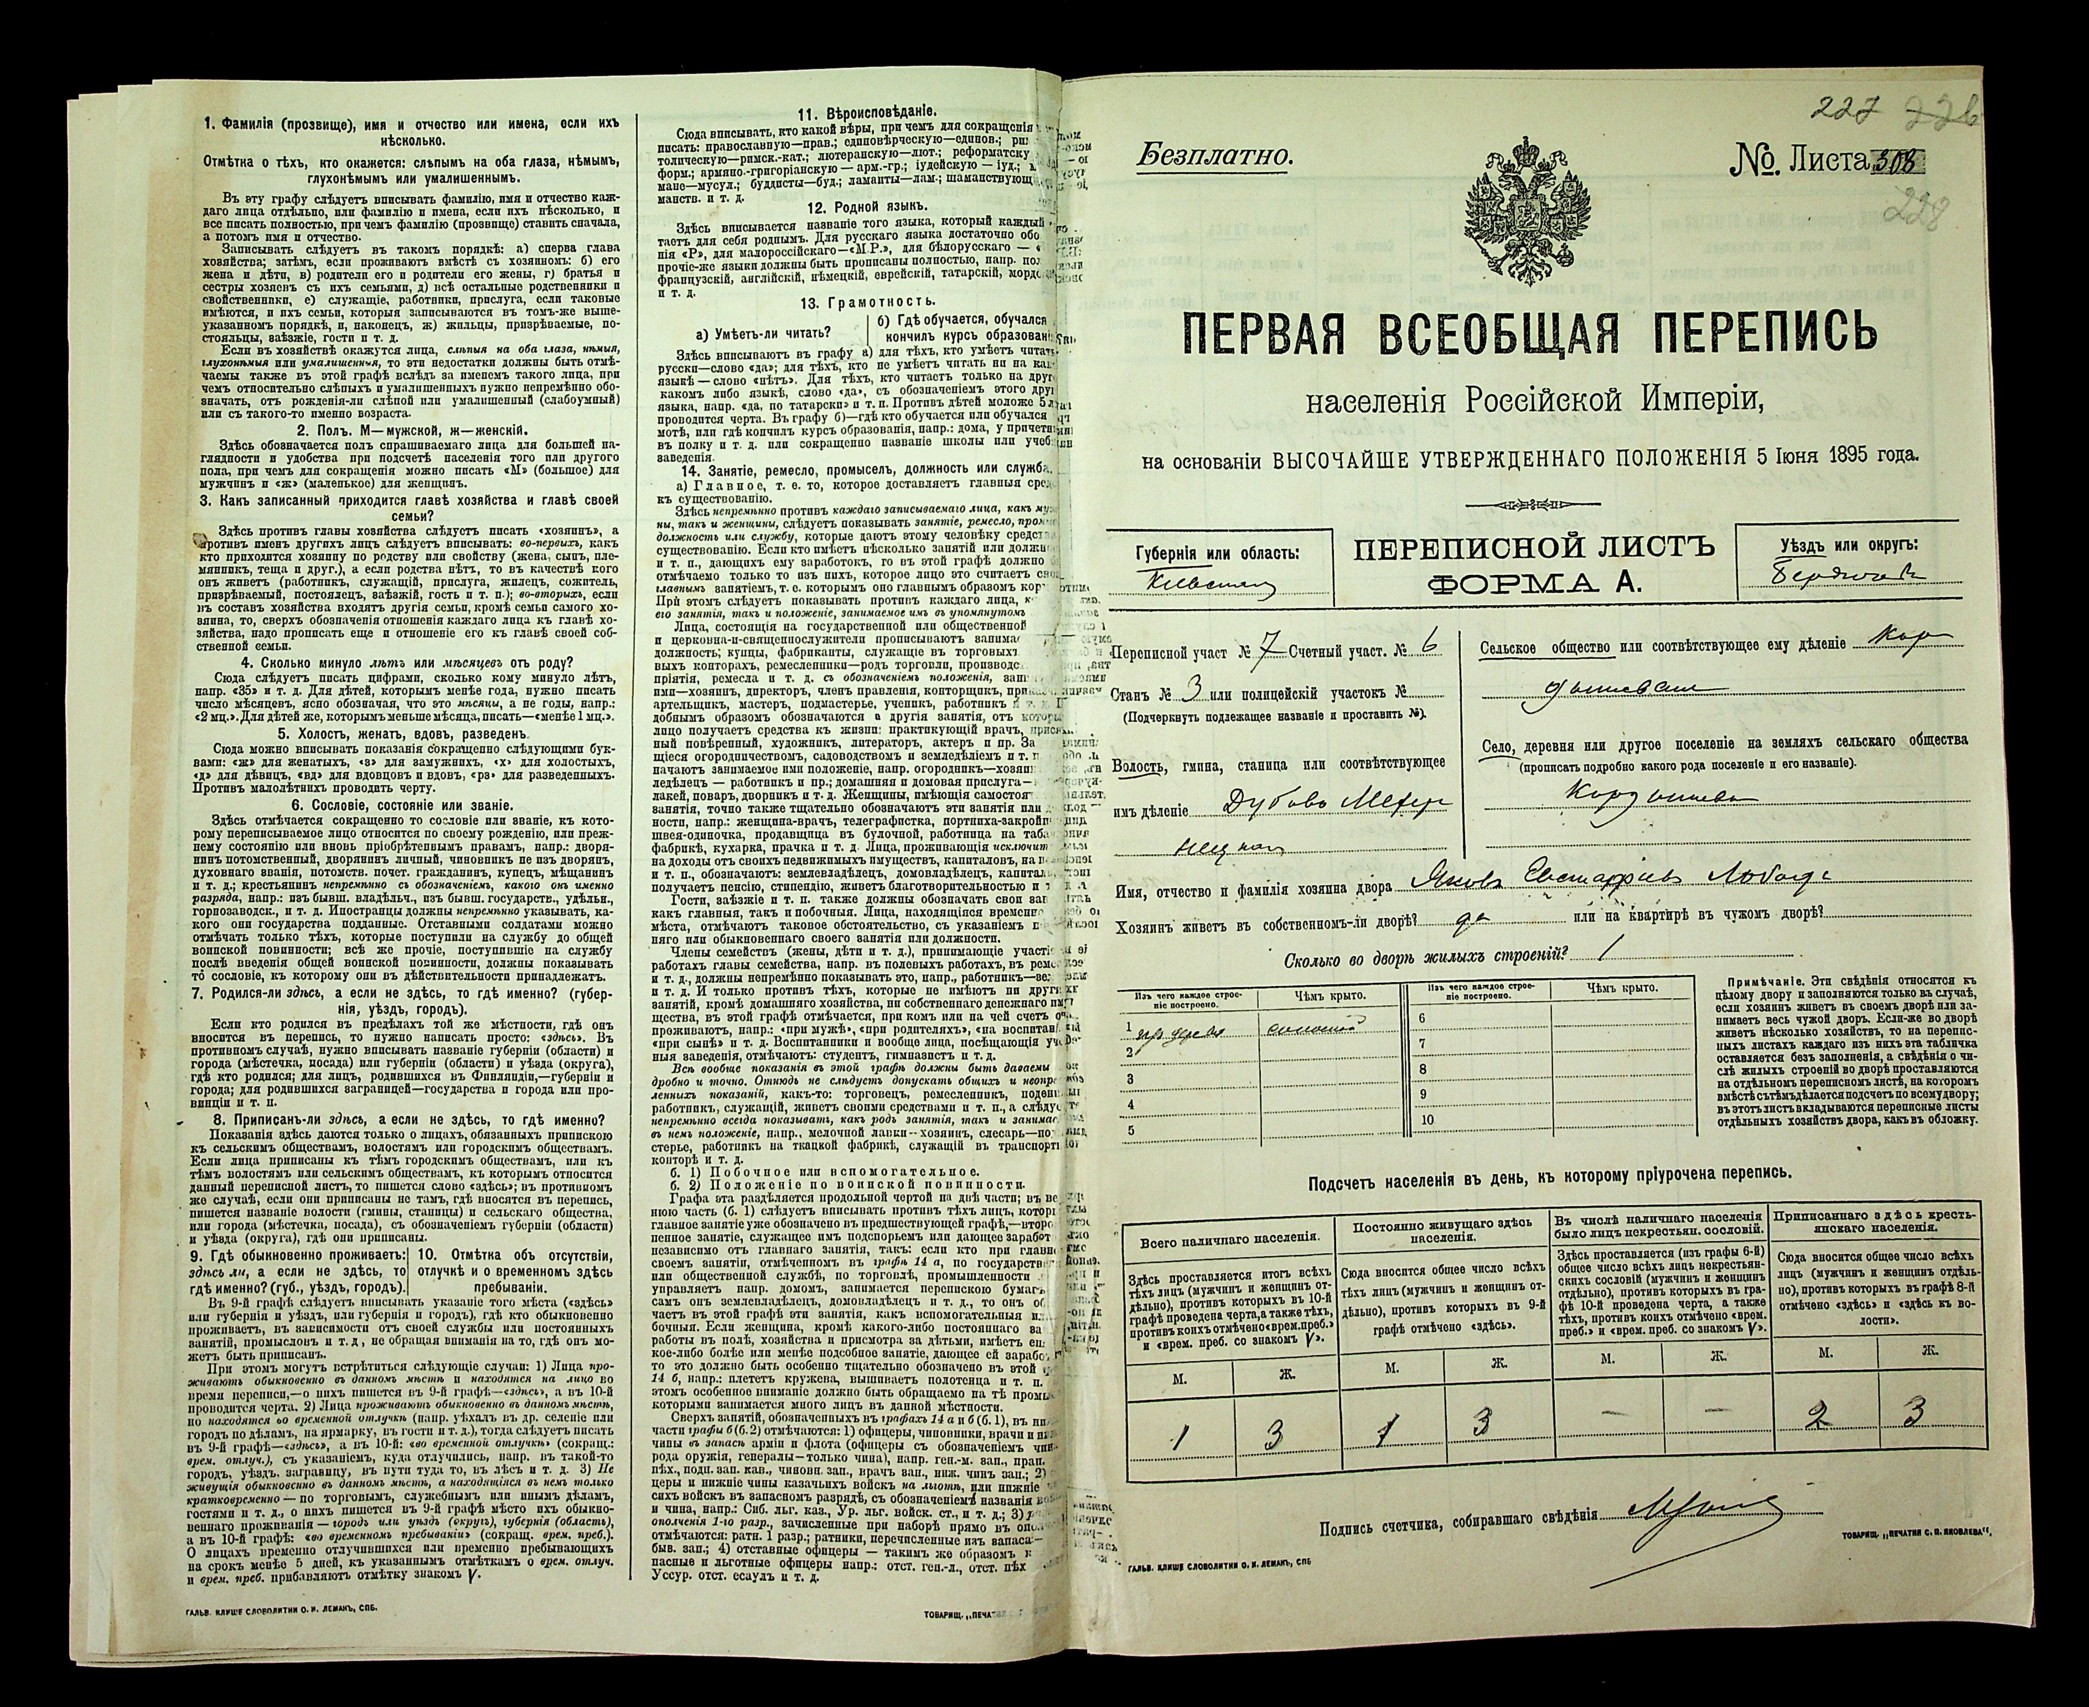 1. Фамилія (прозвище), имя и отчество или имена, если ихъ
нѣсколько.
Отмѣтка о тѣхъ, кто окажется: слѣпымъ на оба глаза, нѣмымъ,
глухонѣмымъ или умалишеннымъ.
Въ эту графу слѣдуетъ вписывать фамилію, имя и отчество каж-
даго лица отдѣльно, или фамилію и имена, если ихъ нѣсколько, и
все писать полностью, при чемъ фамилію (прозвище) ставить сначала,
а потомъ имя и отчество.
Записывать слѣдуетъ въ такомъ порядкѣ: а) сперва глава
хозяйства; затѣмъ, если проживаютъ вмѣстѣ съ хозяиномъ: б) его
жена и дѣти, в) родители его и родители его жены, г) братья и
сестры хозяевъ съ ихъ семьями, д) всѣ остальные родственники и
свойственники, е) служащіе, работники, прислуга, если таковые
имѣются, и ихъ семьи, которыя записываются въ томъ-же выше-
указанномъ порядкѣ, и, наконецъ, ж) жильцы, призрѣваемые, по-
стояльцы, заѣзжіе, гости и т. п.
Если въ хозяйствѣ окажутся лица, слѣпыя на оба глаза, нѣмыя,
глухонѣмыя или умалишенныя, то эти недостатки должны быть отмѣ-
чаемы также въ этой графѣ вслѣдъ за именемъ такого лица, при
чемъ относительно слѣпыхъ и умалишенныхъ нужно непремѣнно обо-
значать, отъ рожденія-ли слѣпой или умалишенный (слабоумный)
или съ такого-то именно возраста.
2. Полъ. М—мужской, ж—женскій.
Здѣсь обозначается полъ спрашиваемаго лица для большей на-
глядности и удобства при подсчетѣ населенія того или другого
пола, при чемъ для сокращенія можно писать «М» (большое) для
мужчинъ и «ж» (маленькое) для женщинъ.
3. Какъ записанный приходится главѣ хозяйства и главѣ своей
семьи?
Здѣсь противъ главы хозяйства слѣдуетъ писать «хозяинъ», а
противъ именъ другихъ лицъ слѣдуетъ вписывать: во-первыхъ, какъ
кто приходится хозяину по родству или свойству (жена, сынъ, пле-
мянникъ, теща и друг.), а если родства нѣтъ, то въ качествѣ кого
онъ живетъ (работникъ, служащій, прислуга, жилецъ, сожитель,
призрѣваемый, постоялецъ, заѣзжій, гость и т. п.); во-вторыхъ, если
въ составъ хозяйства входятъ другія семьи, кромѣ семьи самого хо-
зяина, то, сверхъ обозначенія отношенія каждаго лица къ главѣ хо-
зяйства, надо прописать еще и отношеніе его къ главѣ своей соб-
ственной семьи.
4. Сколько минуло лѣтъ или мѣсяцевъ отъ роду?
Сюда слѣдуетъ писать цифрами, сколько кому минуло лѣтъ,
напр. «35» и т. д. Для дѣтей, которымъ менѣе года, нужно писать
число мѣсяцевъ, ясно обозначая, что это мѣсяцы, а не годы, напр.:
«2 мц.». Для дѣтей же, которымъ меньше мѣсяца, писать—«менѣе 1 мц.».
5. Холостъ, женатъ, вдовъ, разведенъ.
Сюда можно вписывать показанія сокращенно слѣдующими бук-
вами: «ж» для женатыхъ, «з» для замужнихъ, «х» для холостыхъ,
«д» для дѣвицъ, «вд» для вдовцовъ и вдовъ, «рз» для разведенныхъ.
Противъ малолѣтнихъ проводить черту.
6. Сословіе, состояніе или званіе.
Здѣсь отмѣчается сокращенно то сословіе или званіе, къ кото-
рому переписываемое лицо относится по своему рожденію, или преж-
нему состоянію или вновь пріобрѣтеннымъ правамъ, напр.: дворя-
нинъ потомственный, дворянинъ личный, чиновникъ не изъ дворянъ,
духовнаго званія, потомств. почет. гражданинъ, купецъ, мѣщанинъ
и т. д.; крестьянинъ непремѣнно съ обозначеніемъ, какого онъ именно
разряда, напр.: изъ бывш. владѣльч., изъ бывш. государств., удѣльн.,
горнозаводск., и т. д. Иностранцы должны непремѣнно указывать, ка-
кого они государства подданные. Отставными солдатами можно
отмѣчать только тѣхъ, которые поступили на службу до общей
воинской повинности; всѣ же прочіе, поступившіе на службу
послѣ введенія общей воинской повинности, должны показывать
то сословіе, къ которому они въ дѣйствительности принадлежатъ.
7. Родился-ли здѣсь, а если не здѣсь, то гдѣ именно? (губер-
нія, уѣздъ, городъ).
Если кто родился въ предѣлахъ той же мѣстности, гдѣ онъ
вносится въ перепись, то нужно написать просто: «здѣсь». Въ
противномъ случаѣ, нужно вписывать названіе губерніи (области) и
города (мѣстечка, посада) или губерніи (области) и уѣзда (округа),
гдѣ кто родился; для лицъ, родившихся въ Финляндіи,—губерніи и
города; для родившихся заграницей—государства и города или про-
винціи и т. п.
8. Приписанъ-ли здѣсь, а если не здѣсь, то гдѣ именно?
Показанія здѣсь даются только о лицахъ, обязанныхъ припискою
къ сельскимъ обществамъ, волостямъ или городскимъ обществамъ.
Если лица приписаны къ тѣмъ городскимъ обществамъ, или къ
тѣмъ волостямъ или сельскимъ обществамъ, къ которымъ относится
данный переписной листъ, то пишется слово «здѣсь»; въ противномъ
же случаѣ, если они приписаны не тамъ, гдѣ вносятся въ перепись,
пишется названіе волости (гмины, станицы) и сельскаго общества,
или города (мѣстечка, посада), съ обозначеніемъ губерніи (области)
и уѣзда (округа), гдѣ они приписаны.
9. Гдѣ обыкновенно проживаетъ:
здѣсь ли, а если не здѣсь, то
гдѣ именно? (губ., уѣздъ, городъ).
10. Отмѣтка объ отсутствіи,
отлучкѣ и о временномъ здѣсь
пребываніи.
Въ 9-й графѣ слѣдуетъ вписывать указаніе того мѣста («здѣсь»
или губернія и уѣздъ, или губернія и городъ), гдѣ кто обыкновенно
проживаетъ, въ зависимости отъ своей службы или постоянныхъ
занятій, промысловъ и т. д., не обращая вниманія на то, гдѣ онъ мо-
жетъ быть приписанъ.
При этомъ могутъ встрѣтиться слѣдующіе случаи: 1) Лица про-
живаютъ обыкновенно въ данномъ мѣстѣ и находятся на лицо во
время переписи,—о нихъ пишется въ 9-й графѣ—«здѣсь», а въ 10-й
проводится черта. 2) Лица проживаютъ обыкновенно въ данномъ мѣстѣ,
но находятся во временной отлучкѣ (напр. уѣхалъ въ др. селеніе или
городъ по дѣламъ, на ярмарку, въ гости и т. д.), тогда слѣдуетъ писать
въ 9-й графѣ—«здѣсь», а въ 10-й: «во временной отлучкѣ» (сокращ.:
врем. отлуч.), съ указаніемъ, куда отлучились, напр. въ такой-то
городъ, уѣздъ, заграницу, въ пути туда то, въ лѣсъ и т. д. 3) Не
живущія обыкновенно въ данномъ мѣстѣ, а находящіяся въ немъ только
кратковременно — по торговымъ, служебнымъ или инымъ дѣламъ,
гостями и т. д., о нихъ пишется въ 9-й графѣ мѣсто ихъ обыкно-
веннаго проживанія — городъ или уѣздъ (округъ), губернія (область),
а въ 10-й графѣ: «во временномъ пребываніи» (сокращ. врем. преб.).
О лицахъ временно отлучившихся или временно пребывающихъ
на срокъ менѣе 5 дней, къ указаннымъ отмѣткамъ о врем. отлуч.
и врем. преб. прибавляютъ отмѣтку знакомъ V.
ГАЛЬВ. КЛИШЕ СЛОВОЛИТНИ О. И. ЛЕМАНЪ, СПБ.
11. Вѣроисповѣданіе.
Сюда вписывать, кто какой вѣры, при чемъ для сокращенія
писать: православную—прав.; единовѣрческую—единов.;
толическую—римск.-кат.; лютеранскую—лют.; реформатску
форм.; армяно.-григоріанскую — арм.-гр.; іудейскую — іуд.;
мане—мусул.; буддисты—буд.; ламаиты—лам.; шаманствующ
манств. и т. д.
12. Родной языкъ.
Здѣсь вписывается названіе того языка, который каждый
таетъ для себя роднымъ. Для русскаго языка достаточно обо
нія «Р», для малороссійскаго—«М.Р.», для бѣлорусскаго —
прочіе-же языки должны быть прописаны полностью, напр.
французскій, англійскій, нѣмецкій, еврейскій, татарскій,
и т. д.
13. Грамотность.
а) Умѣетъ-ли читать?
б) Гдѣ обучается, обучался
кончилъ курсъ образован
Здѣсь вписываютъ въ графу а) для тѣхъ, кто умѣетъ читать
русски—слово «да»; для тѣхъ, кто не умѣетъ читать ни на
языкѣ — слово «нѣтъ». Для тѣхъ, кто читаетъ только на
какомъ либо языкѣ, слово «да», съ обозначеніемъ этого
языка, напр. «да, по татарски» и т. п. Противъ дѣтей моложе 5
проводится черта. Въ графу б)—гдѣ кто обучается или обучался
мотѣ, или гдѣ кончилъ курсъ образованія, напр.: дома, у
въ полку и т. д. или сокращенно названіе школы или учеб
заведенія.
14. Занятіе, ремесло, промыселъ, должность или служба.
а) Главное, т. е. то, которое доставляетъ главныя
къ существованію.
Здѣсь непремѣнно противъ каждаго записываемаго лица, какъ
ны, такъ и женщины, слѣдуетъ показывать занятіе, ремесло,
должность или службу, которые даютъ этому человѣку
существованію. Если кто имѣетъ нѣсколько занятій или
и т. п., дающихъ ему заработокъ, то въ этой графѣ должно
отмѣчаемо только то изъ нихъ, которое лицо это считаетъ
главнымъ занятіемъ, т. е. которымъ оно главнымъ образомъ
При этомъ слѣдуетъ показывать противъ каждаго лица,
его занятія, такъ и положеніе, занимаемое имъ въ упомянутомъ
Лица, состоящія на государственной или общественной
и церковна-и-священнослужители прописываютъ
должность; купцы, фабриканты, служащіе въ торговыхъ
выхъ конторахъ, ремесленники—родъ торговли,
пріятія, ремесла и т. д. съ обозначеніемъ положенія,
ими—хозяинъ, директоръ, членъ правленія, конторщикъ,
артельщикъ, мастеръ, подмастерье, ученикъ, работникъ
добнымъ образомъ обозначаются и другія занятія, отъ
лицо получаетъ средства къ жизни: практикующій врачъ,
ный повѣренный, художникъ, литераторъ, актеръ и пр.
щіеся огородничествомъ, садоводствомъ и земледѣліемъ и т. п.
начаютъ занимаемое ими положеніе, напр. огородникъ—хозяин
ледѣлецъ — работникъ и пр.; домашняя и домовая прислуга—
лакей, поваръ, дворникъ и т. д. Женщины, имѣющія
занятія, точно также тщательно обозначаютъ эти занятія или
ности, напр.: женщина-врачъ, телеграфистка,
швея-одиночка, продавщица въ булочной, работница на
фабрикѣ, кухарка, прачка и т. д. Лица, проживающія исключит
на доходы отъ своихъ недвижимыхъ имуществъ, капиталовъ,
и т. п., обозначаютъ: землевладѣлецъ, домовладѣлецъ,
получаетъ пенсію, стипендію, живетъ благотворительностью и
Гости, заѣзжіе и т. п. также должны обозначать свои
какъ главныя, такъ и побочныя. Лица, находящіяся временно
мѣста, отмѣчаютъ таковое обстоятельство, съ указаніемъ
няго или обыкновеннаго своего занятія или должности.
Члены семействъ (жены, дѣти и т. д.), принимающіе участі
работахъ главы семейства, напр. въ полевыхъ работахъ, въ
и т. д., должны непремѣнно показывать это, напр., работникъ—
и т. д. И только противъ тѣхъ, которые не имѣютъ ни
занятій, кромѣ домашняго хозяйства, ни собственнаго денежнаго
щества, въ этой графѣ отмѣчается, при комъ или на чей счетъ
проживаютъ, напр.: «при мужѣ», «при родителяхъ», «на
«при сынѣ» и т. д. Воспитанники и вообще лица, посѣщающія
ныя заведенія, отмѣчаютъ: студентъ, гимназистъ и т. д.
Всѣ вообще показанія въ этой графѣ должны быть даваемы
дробно и точно. Отнюдь не слѣдуетъ допускать общихъ и
ленныхъ показаній, какъ-то: торговецъ, ремесленникъ,
работникъ, служащій, живетъ своими средствами и т. п., а
непремѣнно всегда показывать, какъ родъ занятія, такъ и
въ немъ положеніе, напр., мелочной лавки—хозяинъ, слесарь—
стерье, работникъ на ткацкой фабрикѣ, служащій въ
конторѣ и т. д.
б. 1) Побочное или вспомогательное.
б. 2) Положеніе по воинской повинности.
Графа эта раздѣляется продольной чертой на двѣ части;
нюю часть (б. 1) слѣдуетъ вписывать противъ тѣхъ лицъ,
главное занятіе уже обозначено въ предшествующей графѣ,—
пенное занятіе, служащее имъ подспорьемъ или дающее
независимо отъ главнаго занятія, такъ: если кто при
своемъ занятіи, отмѣченномъ въ графѣ 14 а, по
или общественной службѣ, по торговлѣ, промышленности
управляетъ напр. домомъ, занимается перепискою
самъ онъ землевладѣлецъ, домовладѣлецъ и т. д., то онъ
чаетъ въ этой графѣ эти занятія, какъ вспомогательныя
бочныя. Если женщина, кромѣ какого-либо постояннаго
работы въ полѣ, хозяйства и присмотра за дѣтьми, имѣетъ
кое-либо болѣе или менѣе подсобное занятіе, дающее ей
то это должно быть особенно тщательно обозначено въ этой
14 б, напр.: плететъ кружева, вышиваетъ полотенца и т. п.
этомъ особенное вниманіе должно быть обращаемо на тѣ
которыми занимается много лицъ въ данной мѣстности.
Сверхъ занятій, обозначенныхъ въ графахъ 14 а и б (б. 1), въ
части графы б (б. 2) отмѣчаются: 1) офицеры, чиновники, врачи и
чины въ запасѣ арміи и флота (офицеры съ обозначеніемъ
рода оружія, генералы—только чина), напр. ген.-м. зап., прап.
пѣх., подп. зап. кав., чиновн. зап., врачъ зап., ниж. чинъ зап.;
церы и нижніе чины казачьихъ войскъ на льготѣ, или нижніе
сихъ войскъ въ запасномъ разрядѣ, съ обозначеніемъ названія
и чина, напр.: Сиб. льг. каз., Ур. льг. войск. ст., и т. д.; 3)
ополченія 1-го разр., зачисленные при наборѣ прямо въ
отмѣчаются: ратн. 1 разр.; ратники, перечисленные изъ запаса—
быв. зап.; 4) отставные офицеры — такимъ же образомъ
пасные и льготные офицеры напр.: отст. ген.-л., отст. пѣх
Уссур. отст. есаулъ и т. д.
ТОВАРИЩ. „ПЕЧА
227
Безплатно.
№. Листа 308
228
ПЕРВАЯ ВСЕОБЩАЯ ПЕРЕПИСЬ
населенія Россійской Имперіи,
на основаніи ВЫСОЧАЙШЕ УТВЕРЖДЕННАГО ПОЛОЖЕНІЯ 5 Іюня 1895 года.
Губернія или область:
Кіевская
ПЕРЕПИСНОЙ ЛИСТЪ
ФОРМА А.
Уѣздъ или округъ:
Бердичев
Переписной участ № 7 Счетный участ. № 6
Станъ № 3 или полицейскій участокъ №
(Подчеркнуть подлежащее названіе и проставить №).
Волость, гмина, станица или соотвѣтствующее
имъ дѣленіе Дубово Махар
нецкая
Сельское общество или соотвѣтствующее ему дѣленіе Кор
дышевская
Село, деревня или другое поселеніе на земляхъ сельскаго общества
(прописать подробно какого рода поселеніе и его названіе).
Кордышевка
Имя, отчество и фамилія хозяина двора Яковъ Евстафіевъ Лобода
Хозяинъ живетъ въ собственномъ-ли дворѣ? да или на квартирѣ въ чужомъ дворѣ?
Сколько во дворѣ жилыхъ строеній? 1
Изъ чего каждое строе-
ніе построено.
Чѣмъ крыто.
Изъ чего каждое строе-
ніе построено.
Чѣмъ крыто.
1 изъ дерева соломой
2
3
4
5
6
7
8
9
10
Примѣчаніе. Эти свѣдѣнія относятся къ
цѣлому двору и заполняются только въ случаѣ,
если хозяинъ живетъ въ своемъ дворѣ или за-
нимаетъ весь чужой дворъ. Если-же во дворѣ
живетъ нѣсколько хозяйствъ, то на перепис-
ныхъ листахъ каждаго изъ нихъ эта табличка
оставляется безъ заполненія, а свѣдѣнія о чи-
слѣ жилыхъ строеній во дворѣ проставляются
на отдѣльномъ переписномъ листѣ, на которомъ
вмѣстѣ съ тѣмъ дѣлается подсчетъ по всему двору;
въ этотъ листъ вкладываются переписные листы
отдѣльныхъ хозяйствъ двора, какъ въ обложку.
Подсчетъ населенія въ день, къ которому пріурочена перепись.
Всего наличнаго населенія.
Постоянно живущаго здѣсь
населенія.
Въ числѣ наличнаго населенія
было лицъ некрестьян. сословій.
Приписаннаго здѣсь кресть-
янскаго населенія.
Здѣсь проставляется итогъ всѣхъ
тѣхъ лицъ (мужчинъ и женщинъ от-
дѣльно), противъ которыхъ въ 10-й
графѣ проведена черта, а также тѣхъ,
противъ коихъ отмѣчено «врем. преб.»
и «врем. преб. со знакомъ V».
Сюда вносится общее число всѣхъ
тѣхъ лицъ (мужчинъ и женщинъ от-
дѣльно), противъ которыхъ въ 9-й
графѣ отмѣчено «здѣсь».
Здѣсь проставляется (изъ графы 6-й)
общее число всѣхъ лицъ некрестьян-
скихъ сословій (мужчинъ и женщинъ
отдѣльно), противъ которыхъ въ гра-
фѣ 10-й проведена черта, а также
тѣхъ, противъ коихъ отмѣчено «врем.
преб.» и «врем. преб. со знакомъ V».
Сюда вносится общее число всѣхъ
лицъ (мужчинъ и женщинъ отдѣль-
но), противъ которыхъ въ графѣ 8-й
отмѣчено «здѣсь» и «здѣсь къ во-
лости».
М. Ж. М. Ж. М. Ж. М. Ж.
1 3 1 3 — — 2 3
Подпись счетчика, собиравшаго свѣдѣнія
ГАЛЬВ. КЛИШЕ СЛОВОЛИТНИ О. И. ЛЕМАНЪ, СПБ
ТОВАРИЩ. „ПЕЧАТНЯ С. П. ЯКОВЛЕВА“.